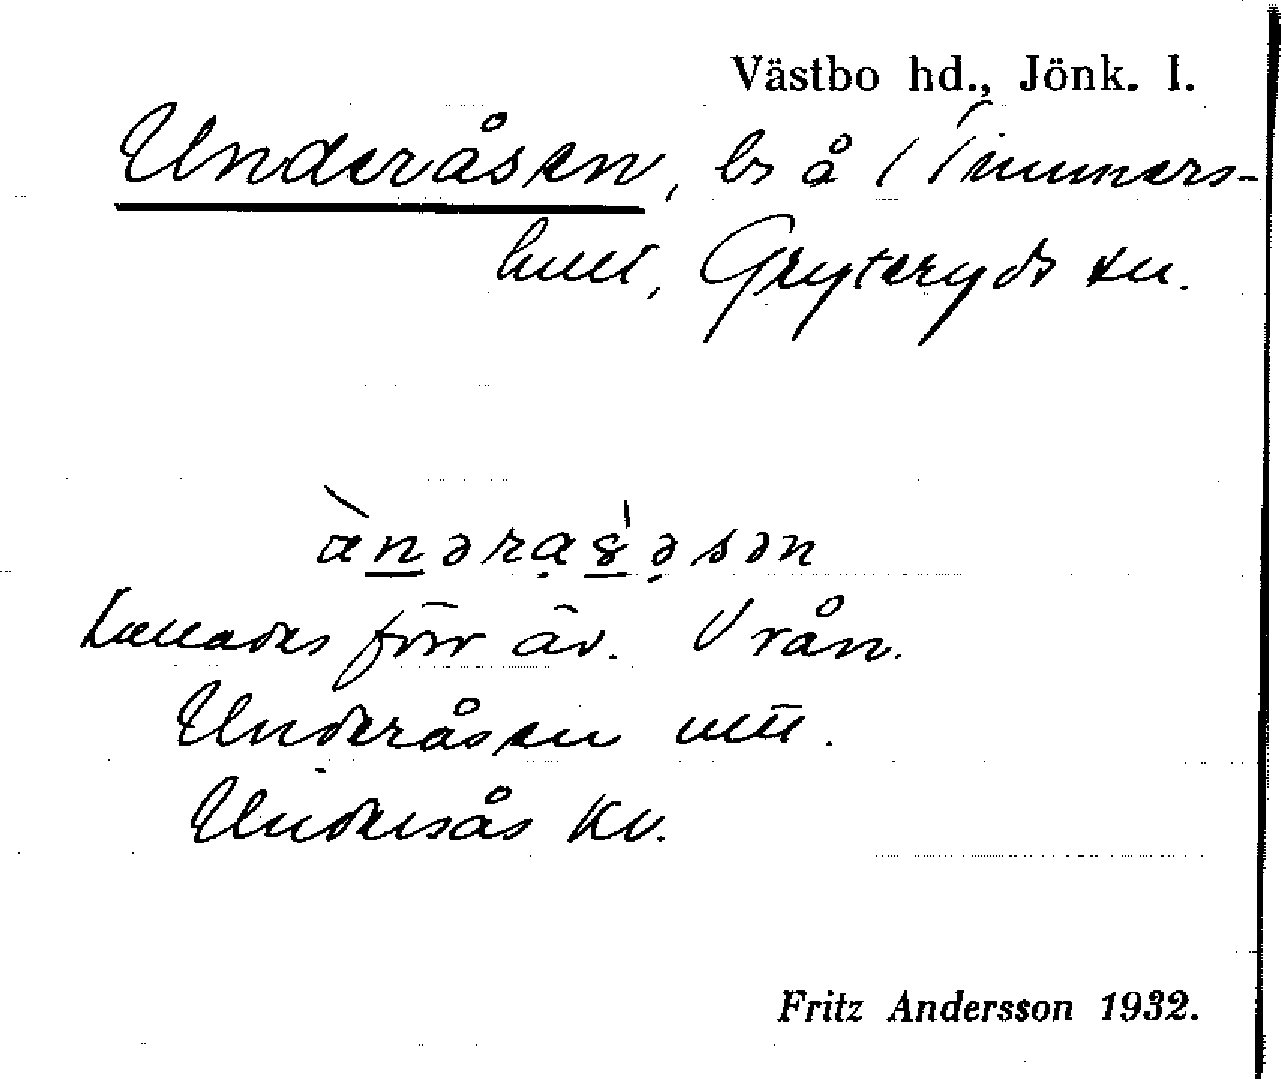 Västbo hd., Jönk. l.
Underåsen, bs å 1 Timmers-
hult, Gryteryds sn.
Kallades förr äv. Vrån.
Underåsen utt.
Underås kv.
Fritz Andersson 1932.